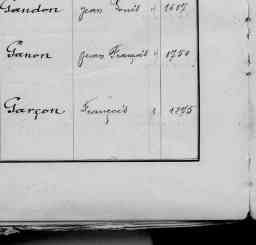 Gandon Jean Louis
Ganon Jean François 1750
Garçon François